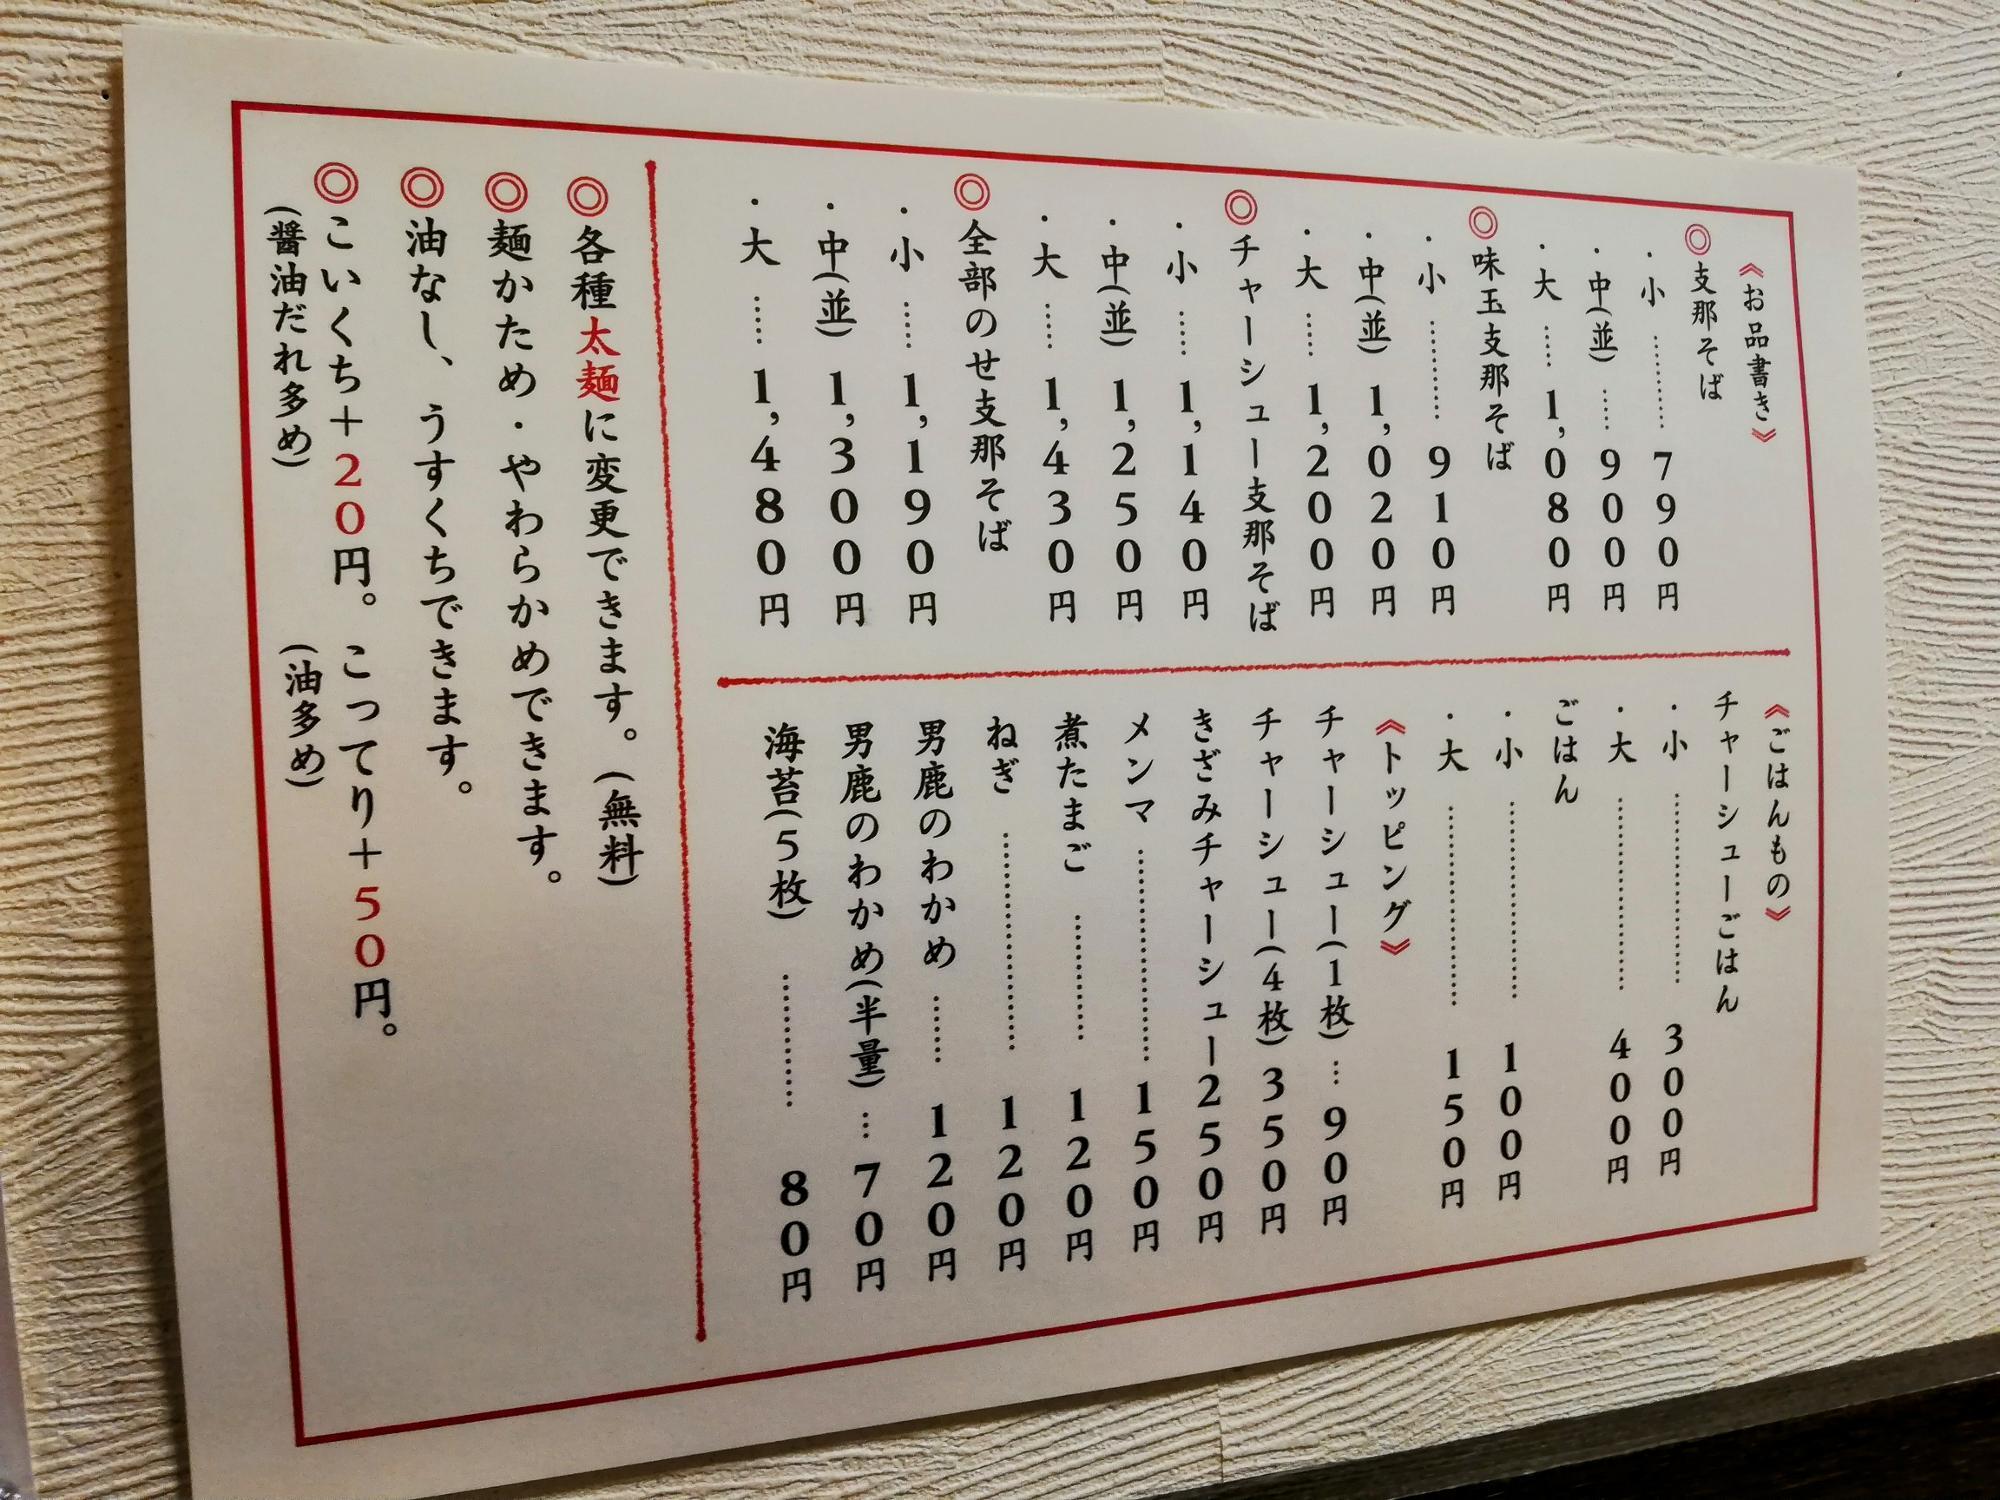 《お品書き》
◎支那そば
・小 ………… 790円
・中(並) …… 900円
・大 …… 1,080円
◎味玉支那そば
・小 ………… 910円
・中(並) 1,020円
・大 …… 1,200円
◎チャーシュー支那そば
・小 …… 1,140円
・中(並) 1,250円
・大 …… 1,430円
◎全部のせ支那そば
・小 …… 1,190円
・中(並) 1,300円
・大 …… 1,480円
《ごはんもの》
チャーシューごはん
・小 ………………… 300円
・大 ………………… 400円
ごはん
・小 ………………… 100円
・大 ………………… 150円
《トッピング》
チャーシュー(1枚) … 90円
チャーシュー(4枚) 350円
きざみチャーシュー250円
メンマ ………………… 150円
煮たまご ………… 120円
ねぎ ………………… 120円
男鹿のわかめ …… 120円
男鹿のわかめ(半量) … 70円
海苔(5枚) ………… 80円
◎各種太麺に変更できます。(無料)
◎麺かため・やわらかめできます。
◎油なし、うすくちできます。
◎こいくち＋20円。こってり＋50円。
(醤油だれ多め) (油多め)